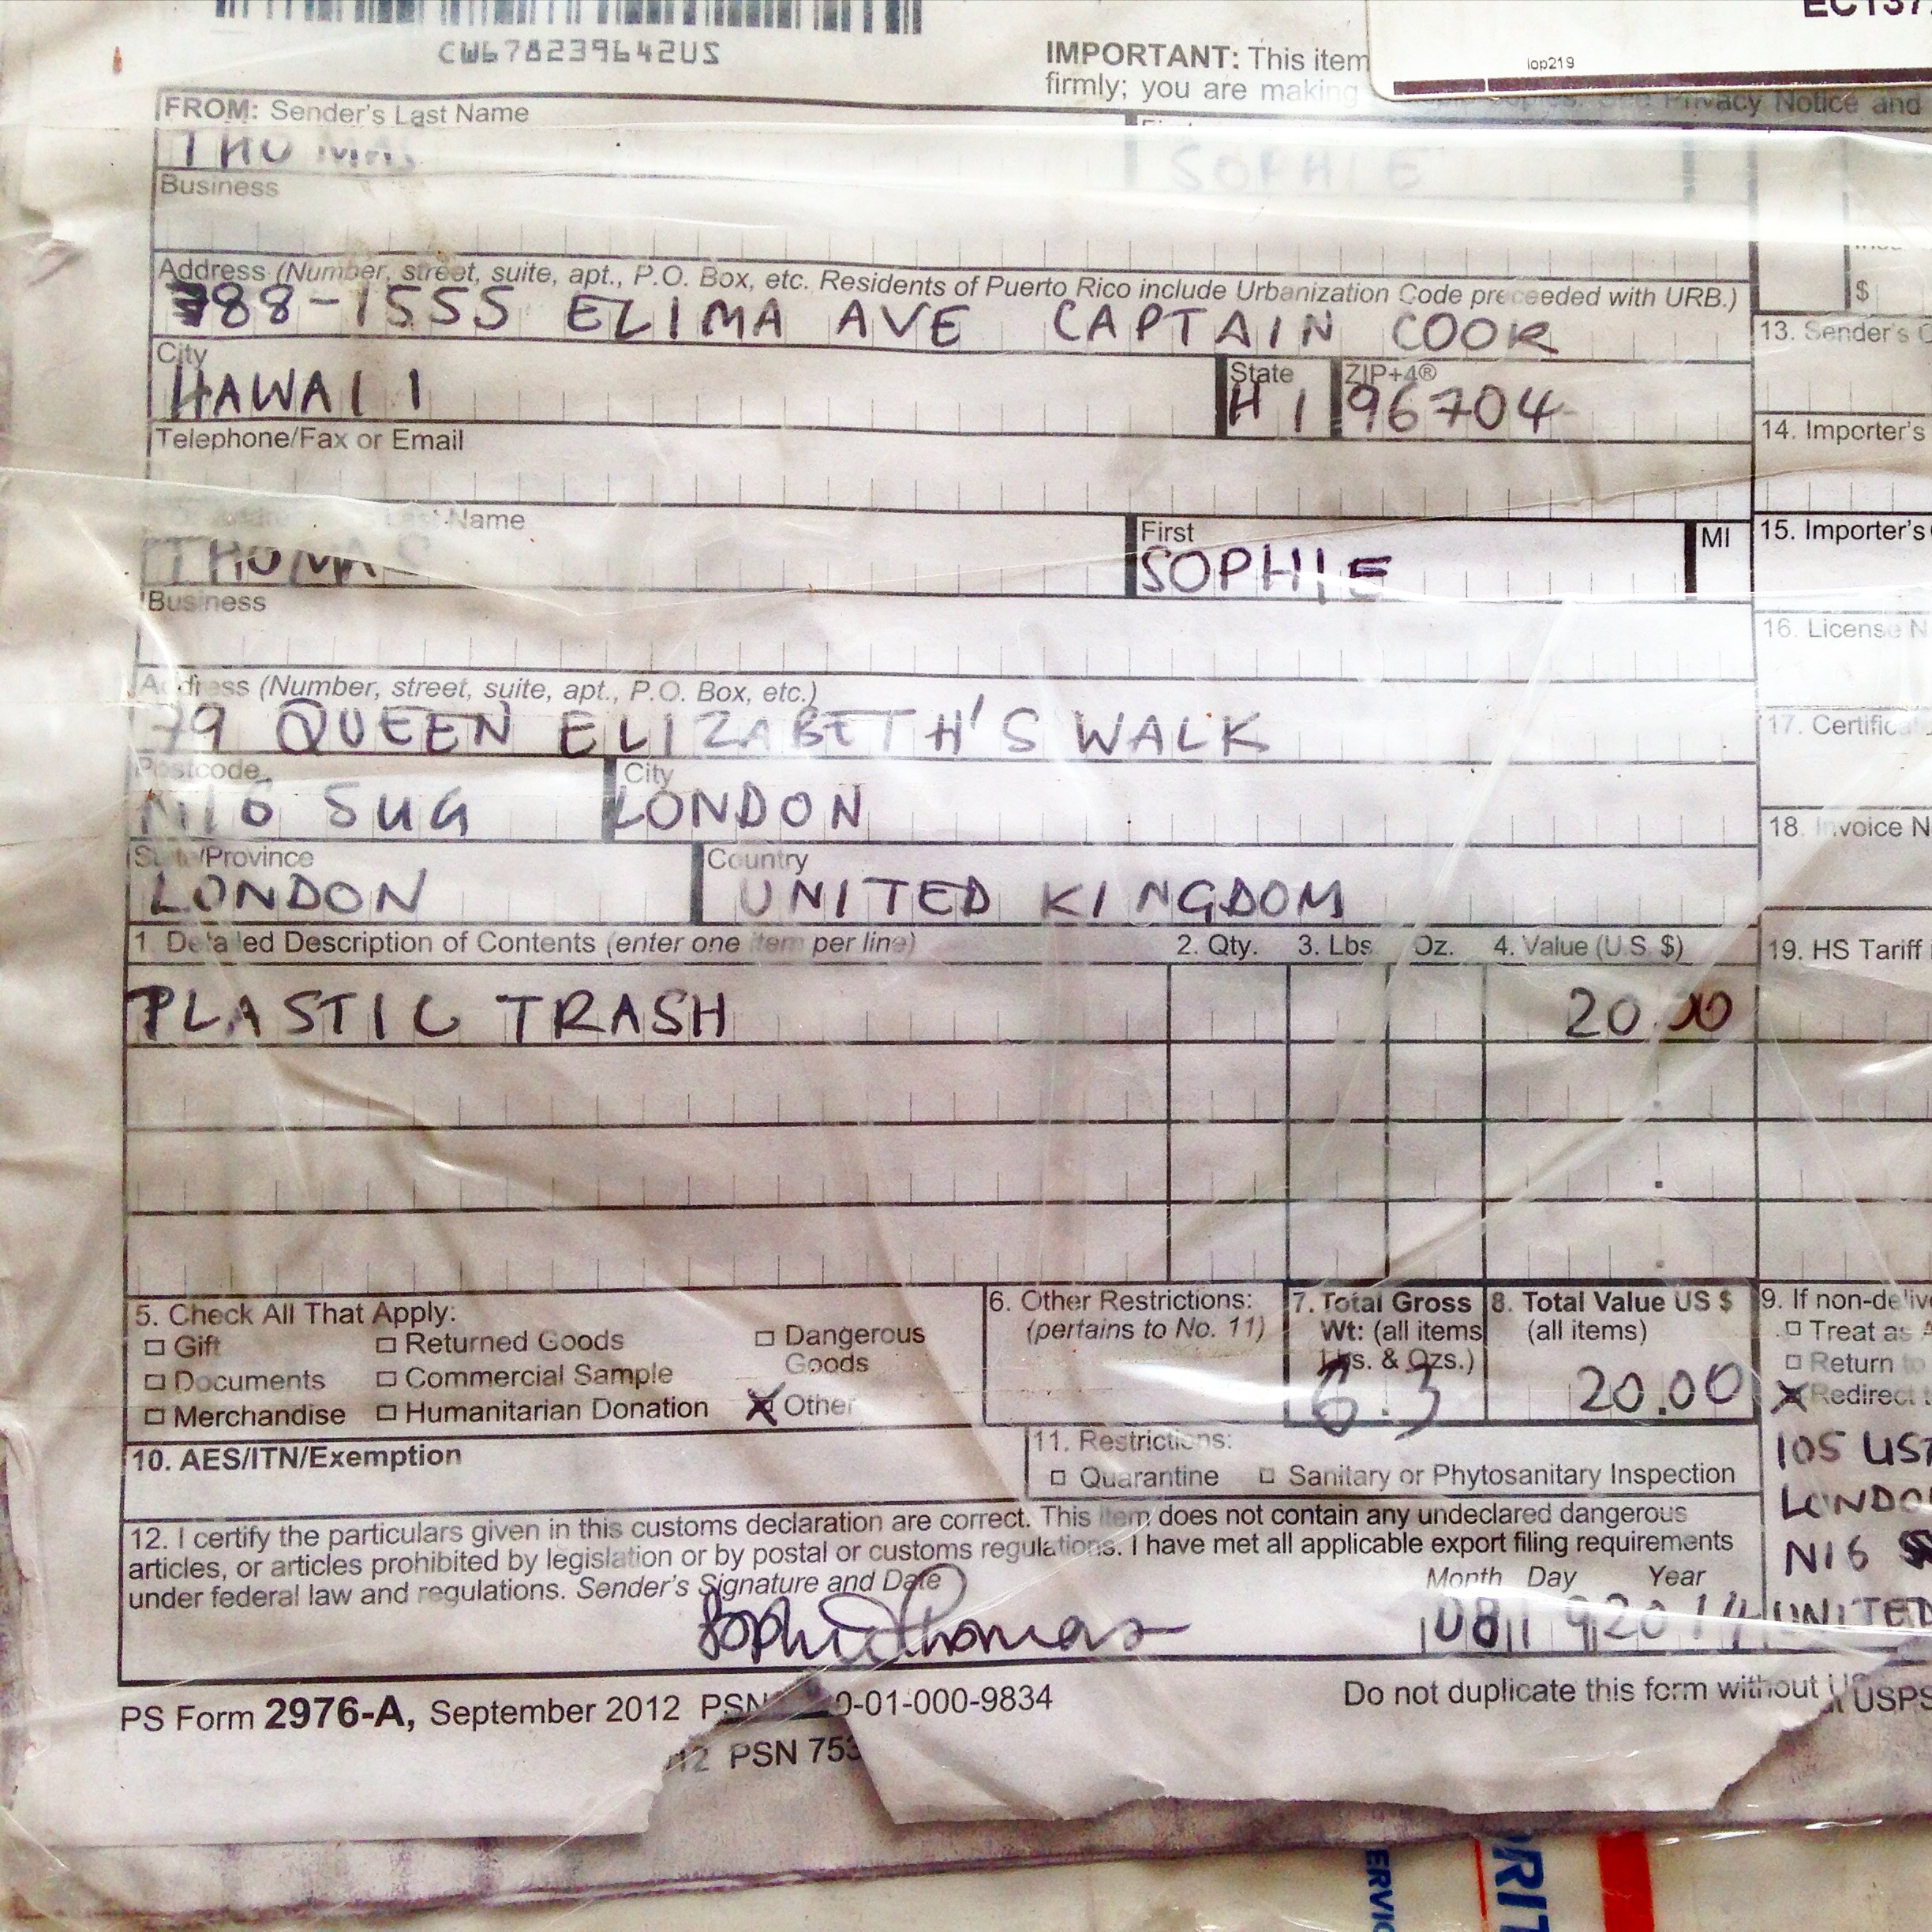 CW678239642US
IMPORTANT: This item
firmly; you are making
Privacy Notice and
iop219
FROM: Sender's Last Name
THOMAS SOPHIE
Business
Address (Number, street, suite, apt., P.O. Box, etc. Residents of Puerto Rico include Urbanization Code preceeded with URB.)
88-1555 ELIMA AVE CAPTAIN COOK
$
13. Sender's
City State ZIP+4®
HAWAII HI 96704
Telephone/Fax or Email
14. Importer's
Last Name First MI
THOMAS SOPHIE
15. Importer's
Business
16. License N
Address (Number, street, suite, apt., P.O. Box, etc.)
79 QUEEN ELIZABETH'S WALK
17. Certific
Postcode City
N16 5UG LONDON
18. Invoice N
State/Province Country
LONDON UNITED KINGDOM
1. Detailed Description of Contents (enter one item per line) 2. Qty. 3. Lbs. Oz. 4. Value (U.S. $)
19. HS Tariff
PLASTIC TRASH 20.00
5. Check All That Apply:
Gift Returned Goods Dangerous Goods
Documents Commercial Sample
Merchandise Humanitarian Donation Other
6. Other Restrictions:
(pertains to No. 11)
7. Total Gross
Wt: (all items
Lbs. & Ozs.)
6.3
8. Total Value US $
(all items)
20.00
9. If non-delive
Treat as A
Return to
Redirect t
105
LONDO
N16
UNITED
10. AES/ITN/Exemption
11. Restrictions:
Quarantine Sanitary or Phytosanitary Inspection
12. I certify the particulars given in this customs declaration are correct. This item does not contain any undeclared dangerous
articles, or articles prohibited by legislation or by postal or customs regulations. I have met all applicable export filing requirements
under federal law and regulations. Sender's Signature and Date
Month Day Year
Sophie Thomas 08 19 2014
PS Form 2976-A, September 2012 PSN 0-01-000-9834
Do not duplicate this form without
USPS
12 PSN 753